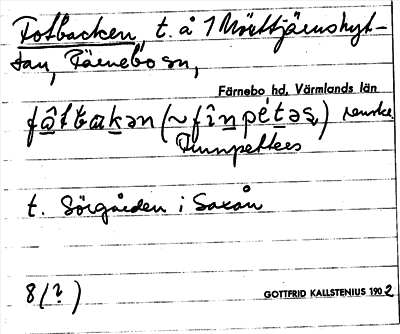 Fotbacken, t. å 1 Mörttjärnshyt-
tan, Färnebo sn,
Färnebo hd, Värmlands län
fò̂tbakən (~ fînpétəs,)
Finnpetters
t. Sörgården i Saxån
8(?)
GOTTFRID KALLSTENIUS 1902